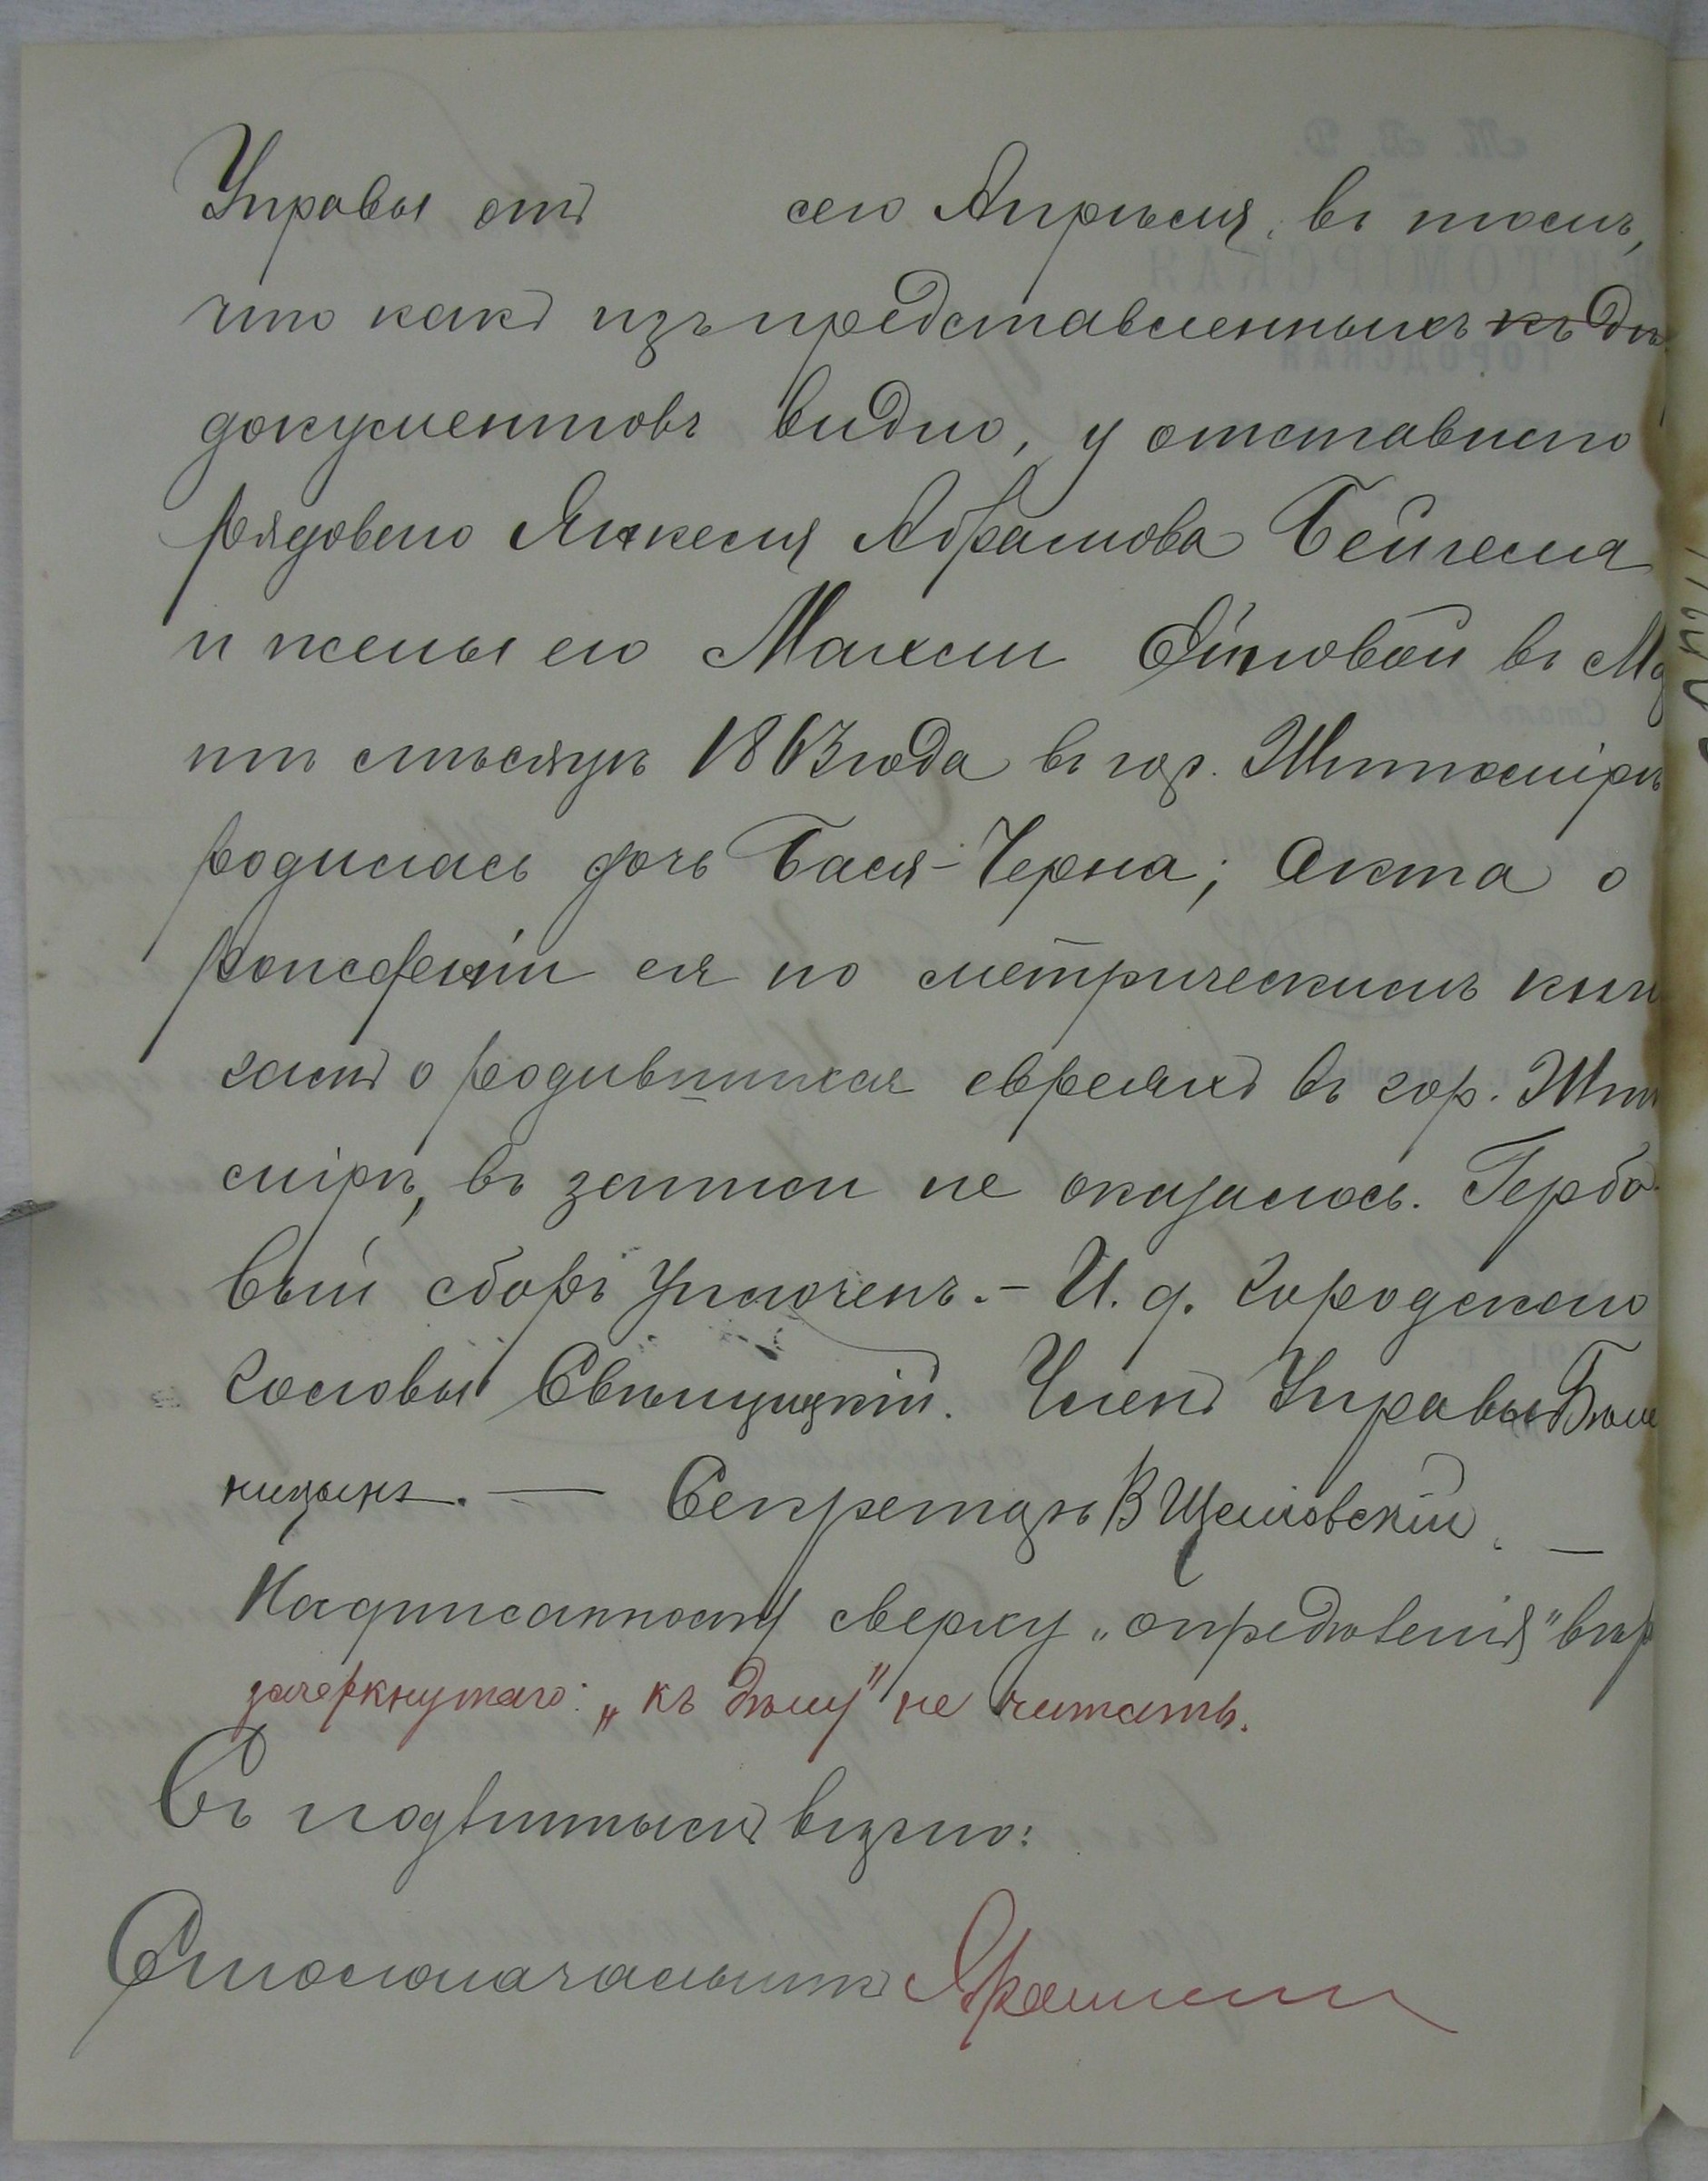 Управы отъ сего Апрѣля, въ томъ,
что какъ изъ представленныхъ къ дѣ
документовъ видно, у отставного
рядового Янкеля Абрамова Бейгеля
и жены его Малки въ Ма
ртѣ мѣсяцѣ 1863 года въ гор. Житомірѣ
родилась дочь Бася-Черна; акта о
рожденіи ея по метрическимъ кни
гамъ о родившихся евреяхъ въ гор. Жито
мірѣ, въ записи не оказалось. Гербо
вый сборъ уплоченъ. – И. д. Городского
Головы Свѣщицкій. Членъ Управы
Секретарь В
Надписанному сверху „опредѣленія" вѣр
зачеркнутаго: „къ дѣлу" не читать.
Съ подлиннымъ вѣрно:
Столоначальникъ